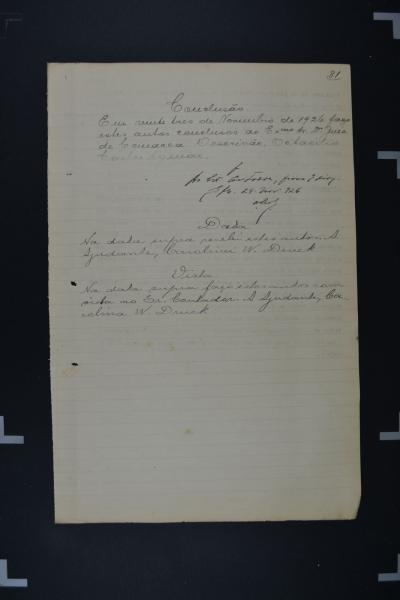 81
Conclusão.
Em vinte tres de Novembro de 1926 faço
estes autos conclusos ao Exmo Sr. Dr. Juiz
de Comarca. O escrivão, Octacilio
Carlos
Ao Sr. Contador, para
28. Nov. 926
Data
Na data supra recebi estes autos. A
Ajudante, Carolina W. Druck
Vista
Na data supra faço estes autos com
vista ao Sr. Contador. A Ajudante, Ca-
rolina W. Druck